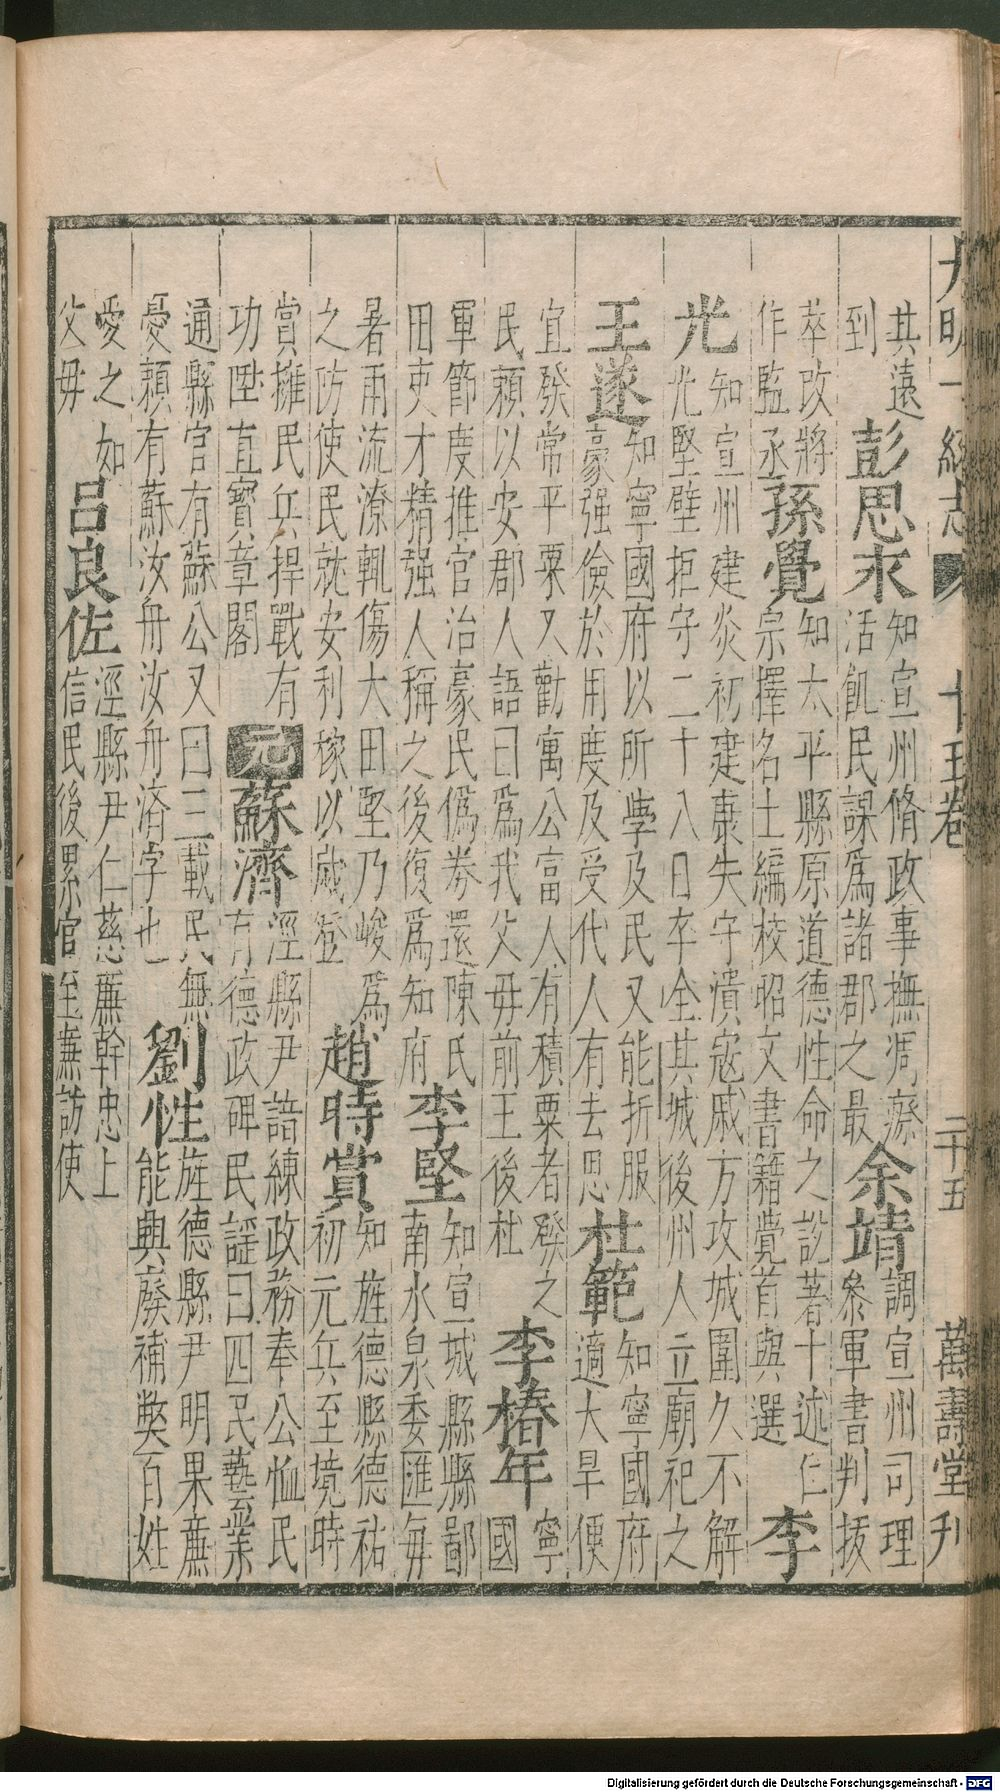 大明一統志 十五卷 二十五 萬壽堂刋
其遠
到
彭思永
知宣州脩政事撫凋瘵
活飢民課爲諸郡之最
余靖
調宣州司理
參軍書判拔
萃改將
作監丞
孫覺
知太平縣原道德性命之說著十述仁
宗擇名士編校昭文書籍覺首與選
李
光
知宣州建炎初建康失守潰寇戚方攻城圍久不解
光堅壁拒守二十八日卒全其城後州人立廟祀之
王遂
知寧國府以所學及民又能折服
豪强儉於用度及受代人有去思
杜範
知寧國府
適大旱便
宜發常平粟又勸寓公富人有積粟者發之
民賴以安郡人語曰爲我父毋前王後杜
李椿年
寧
國
軍節度推官治豪民僞券還陳氏
田吏才精强人稱之後復爲知府
李堅
知宣城縣縣鄙
南水泉委匯每
暑雨流潦輒傷大田堅乃峻爲
之防使民就安利稼以歲登
趙時賞
知旌德縣德祐
初元兵至境時
賞擁民兵捍戰有
功陞直寳章閣
元
蘇濟
涇縣尹諳練政務奉公恤民
有德政碑民謡曰四民藝業
通縣官有蘇公又曰三載民無
憂賴有蘇汝舟汝舟濟字也
劉性
旌德縣尹明果亷
能興廢補獘百姓
愛之如
父毋
呂良佐
涇縣尹仁慈亷幹忠上
信民後累官至亷訪使
Digitalisierung gefördert durch die Deutsche Forschungsgemeinschaft - DFG